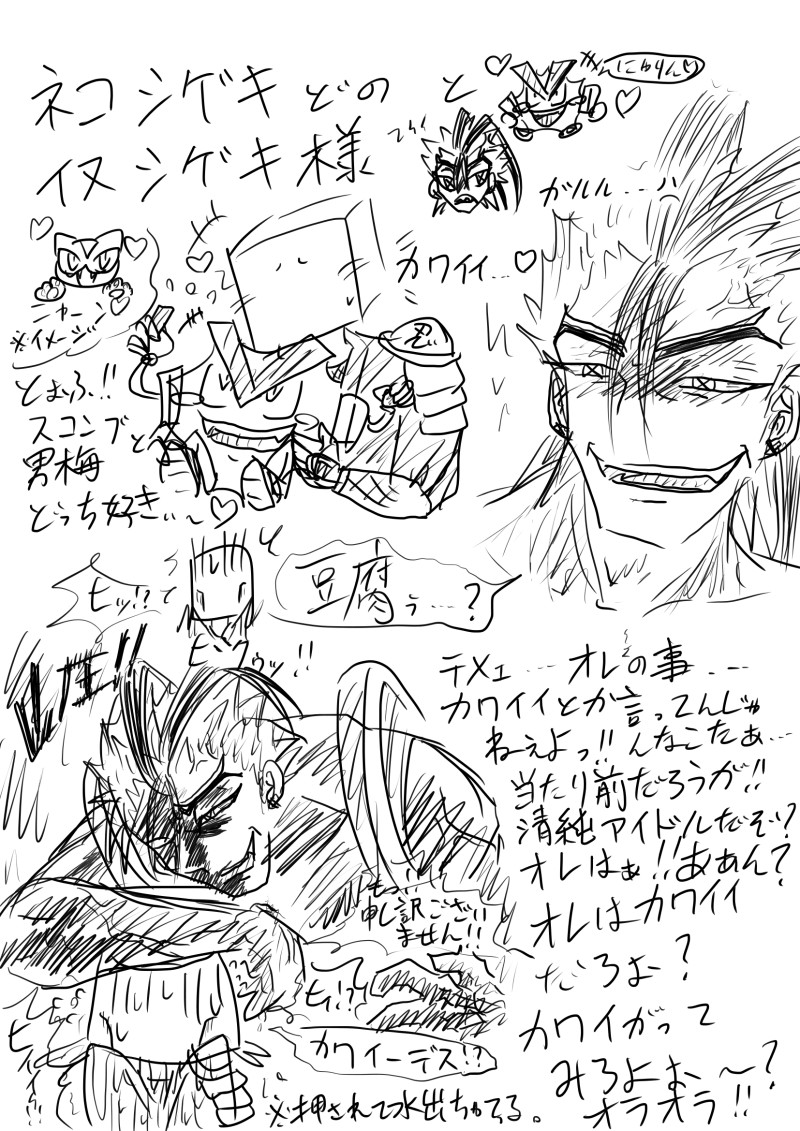 ネコシゲキどのと
イヌシゲキ様
にゅりん♡
ガルル…
カワイイ…♡
ニャーン
※イメージ
とぉふ!!
スコンブと
男梅
どっち好きぃ〜♡
忍
豆腐ぅ…?
ヒッ!?
ビクゥッ!!
テメェ……オレの事……
カワイイとか言ってんじゃ
ねえよっ!!んなこたぁ…
当たり前だろうが!!
清純アイドルだぞ!?
オレはぁ!!あぁん?
オレはカワイイ
だろぉ?
カワイがって
みろよぉ〜?
オラオラ!!
もっ!!
申し訳ござい
ません!!
ヒィ!?
カワイーデス!?
※押されて水出ちゃてる。